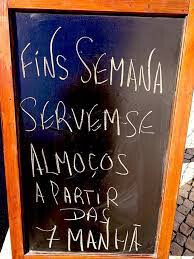 FINS SEMANA
SERVEM-SE
ALMOÇOS
A PARTIR
DAS
7 MANHÃ